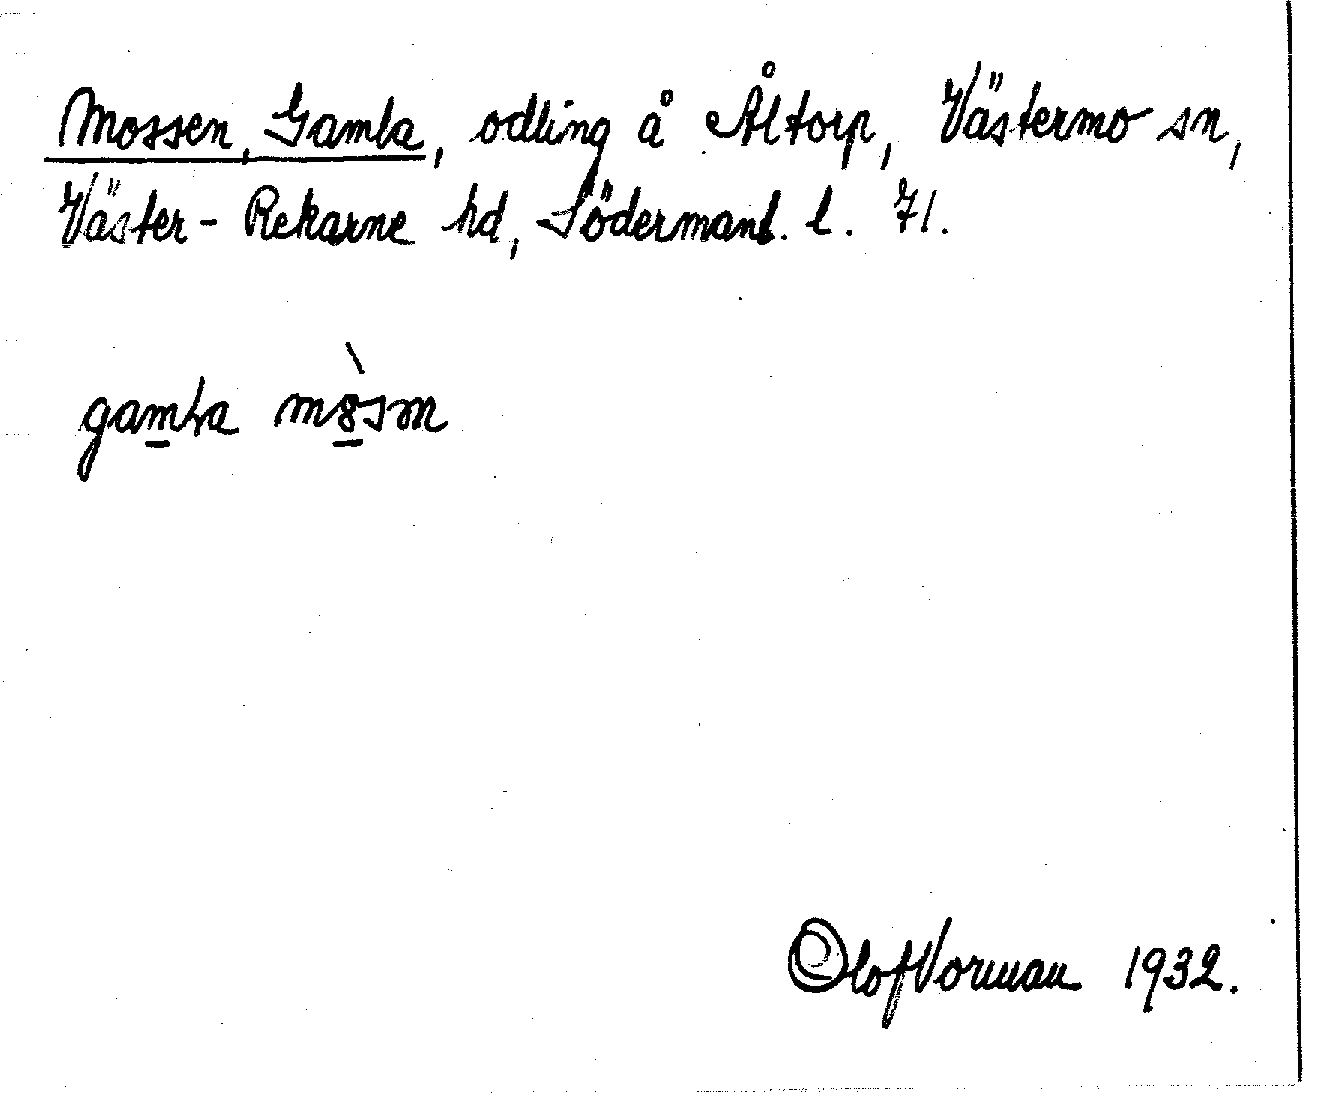 Mossen, Gamla, odling å Åltorp, Västermo sn,
Väster-Rekarne hd, Södermanl. l. 71.
gamla mòsm
Olof Vorman 1932.